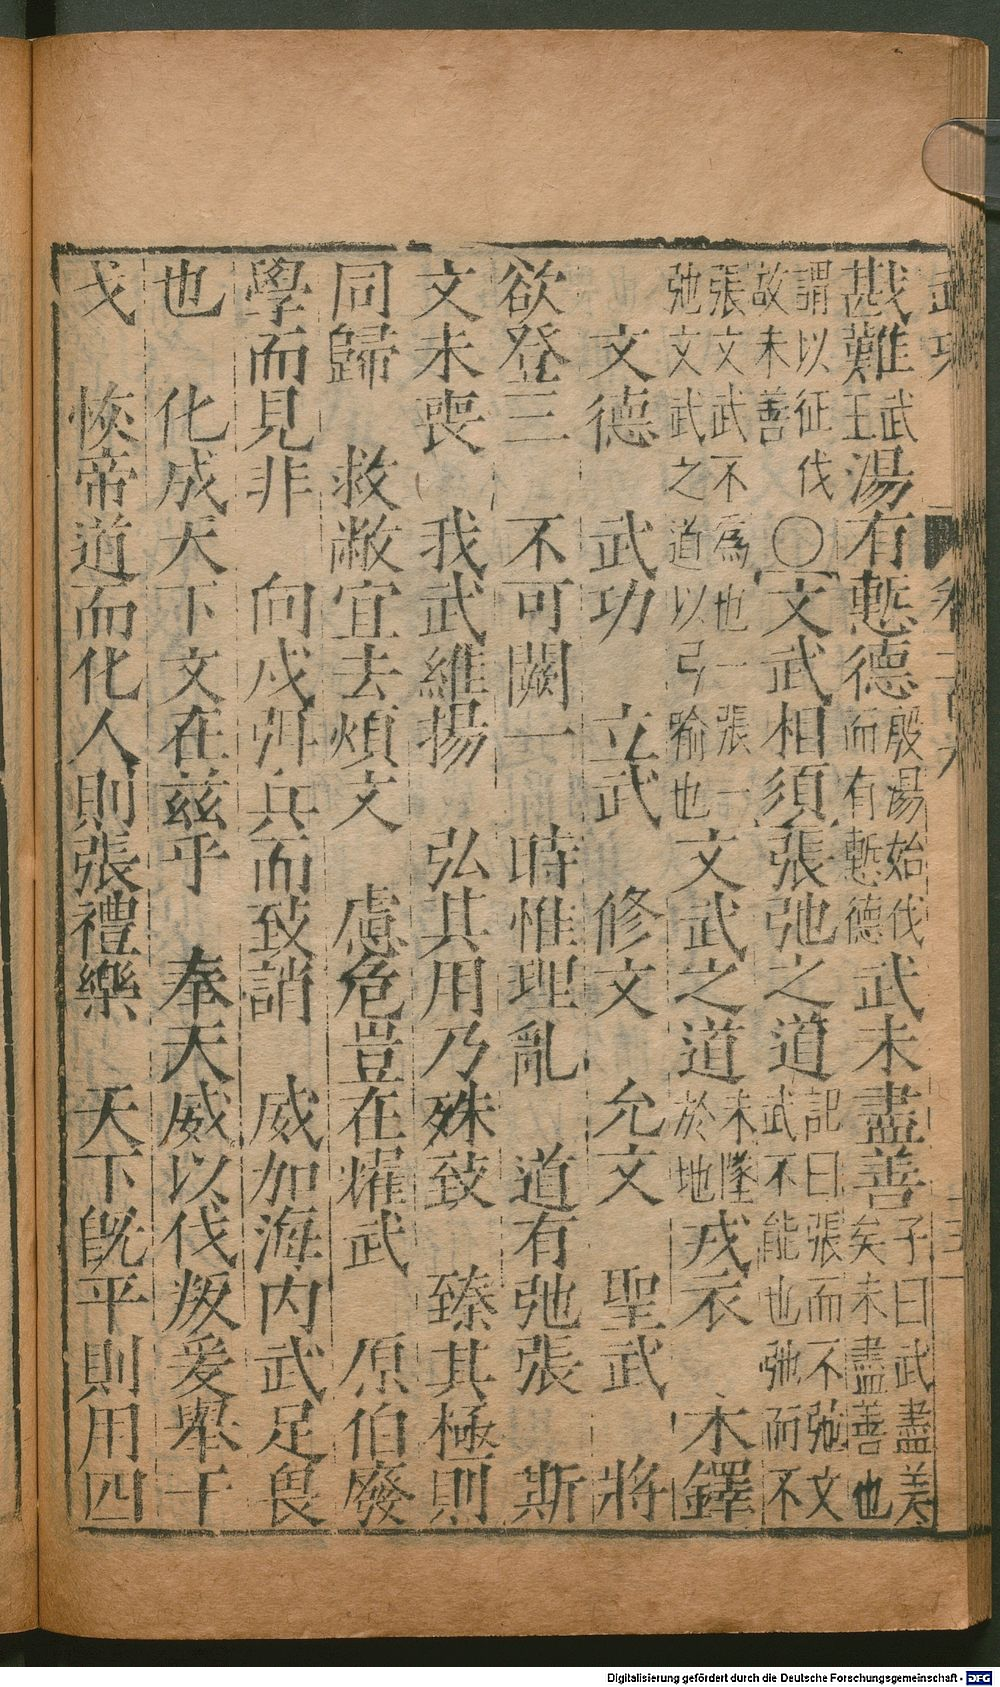 戡難武王湯有慙德殷湯始伐而有慙德武未盡善子曰武盡美矣未盡善也
謂以征伐故未善〇文武相須張弛之道記曰張而不弛文武不能也弛而不
張文武不為也一張一弛文武之道以弓喻也文武之道未墜於地戎衣 木鐸
文德 武功 立武 修文 允文 聖武 將
欲登三 不可闕一 時惟理亂 道有弛張 斯
文未喪 我武維揚 弘其用乃殊致 臻其極則
同歸 救敝宜去煩文 慮危豈在燿武 原伯廢
學而見非 向戍弭兵而致誚 威加海內武足畏
也 化成天下文在茲乎 奉天威以伐叛爰舉干
戈 恢帝道而化人則張禮樂 天下旣平則用四
Digitalisierung gefördert durch die Deutsche Forschungsgemeinschaft - DFG